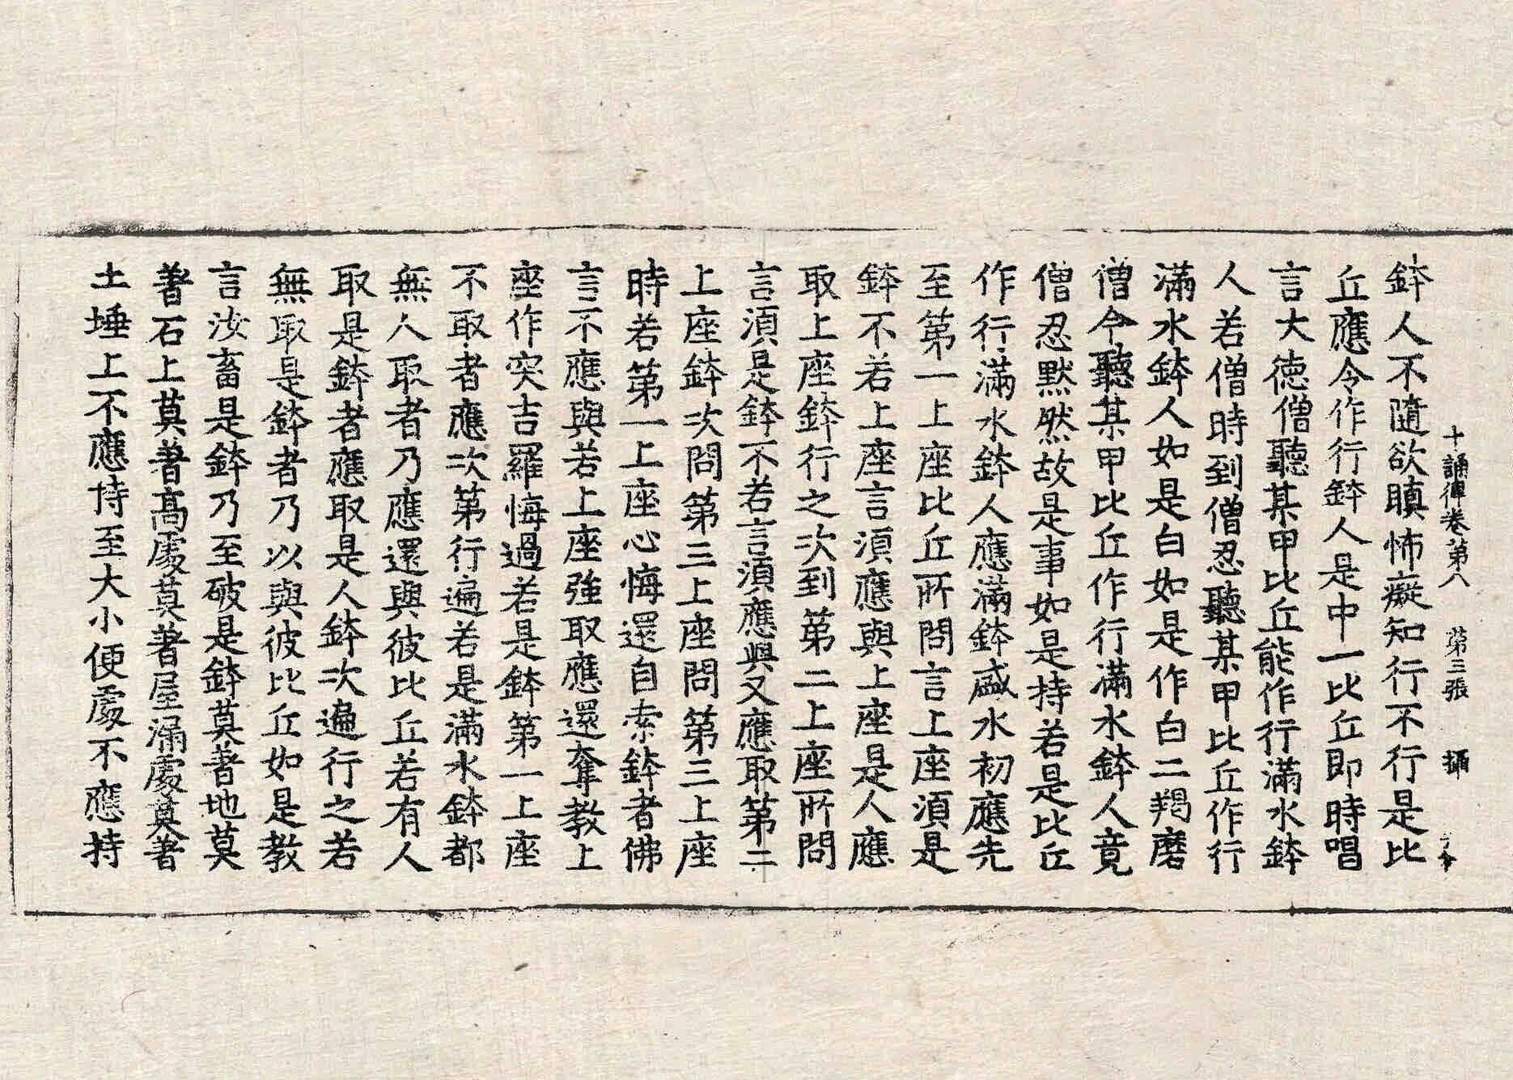 十誦律卷第八　第三張　攝
鉢人不隨欲瞋怖癡知行不行是比
丘應令作行鉢人是中一比丘即時唱
言大德僧聽某甲比丘能作行滿水鉢
人若僧時到僧忍聽某甲比丘作行
滿水鉢人如是白如是作白二羯磨
僧今聽某甲比丘作行滿水鉢人竟
僧忍默然故是事如是持若是比丘
作行滿水鉢人應滿鉢盛水初應先
至第一上座比丘所問言上座須是
鉢不若上座言須應與上座是人應
取上座鉢行之次到第二上座所問
言須是鉢不若言須應與又應取第二
上座鉢次問第三上座問第三上座
時若第一上座心悔還自索鉢者佛
言不應與若上座強取應還奪教上
座作突吉羅悔過若是鉢第一上座
不取者應次第行遍若是滿水鉢都
無人取者乃應還與彼比丘若有人
取是鉢者應取是人鉢次遍行之若
無取是鉢者乃以與彼比丘如是教
言汝畜是鉢乃至破是鉢莫著地莫
著石上莫著高處莫著屋漏處莫著
土埵上不應恃至大小便處不應持